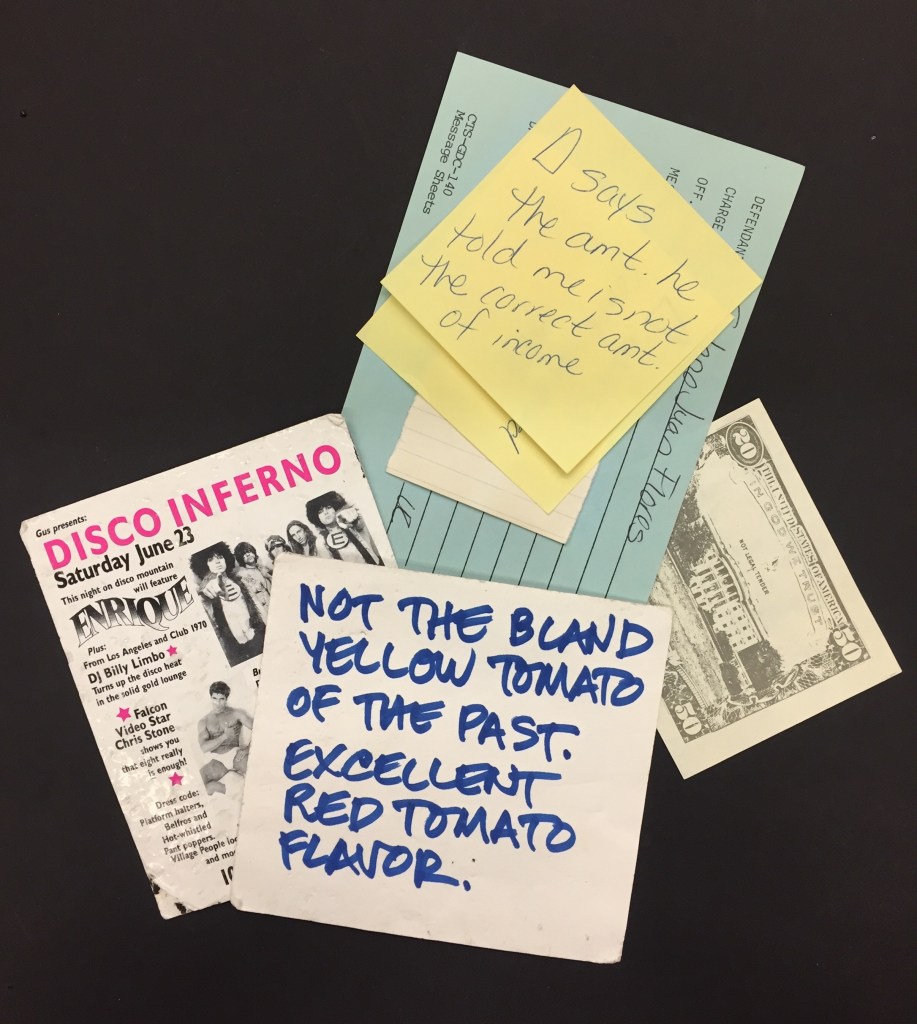 CTS-GDC-140
Message Sheets
DEFENDAN
CHARGE
OFF.
ME
Juan Flores
Δ says
the amt. he
told me is not
the correct amt.
of income
Gus presents:
DISCO INFERNO
Saturday June 23
This night on disco mountain
will feature
ENRIQUE
Plus:
From Los Angeles and Club 1970
DJ Billy Limbo
Turns up the disco heat
in the solid gold lounge
Falcon
Video Star
Chris Stone
shows you
that eight really
is enough!
Dress code:
Platform halters,
Belfros and
Hot-whistled
Pant poppers.
Village People
and
NOT THE BLAND
YELLOW TOMATO
OF THE PAST.
EXCELLENT
RED TOMATO
FLAVOR.
20
THE UNITED STATES OF AMERICA
IN GOD WE TRUST
NOT LEGAL TENDER
50
50